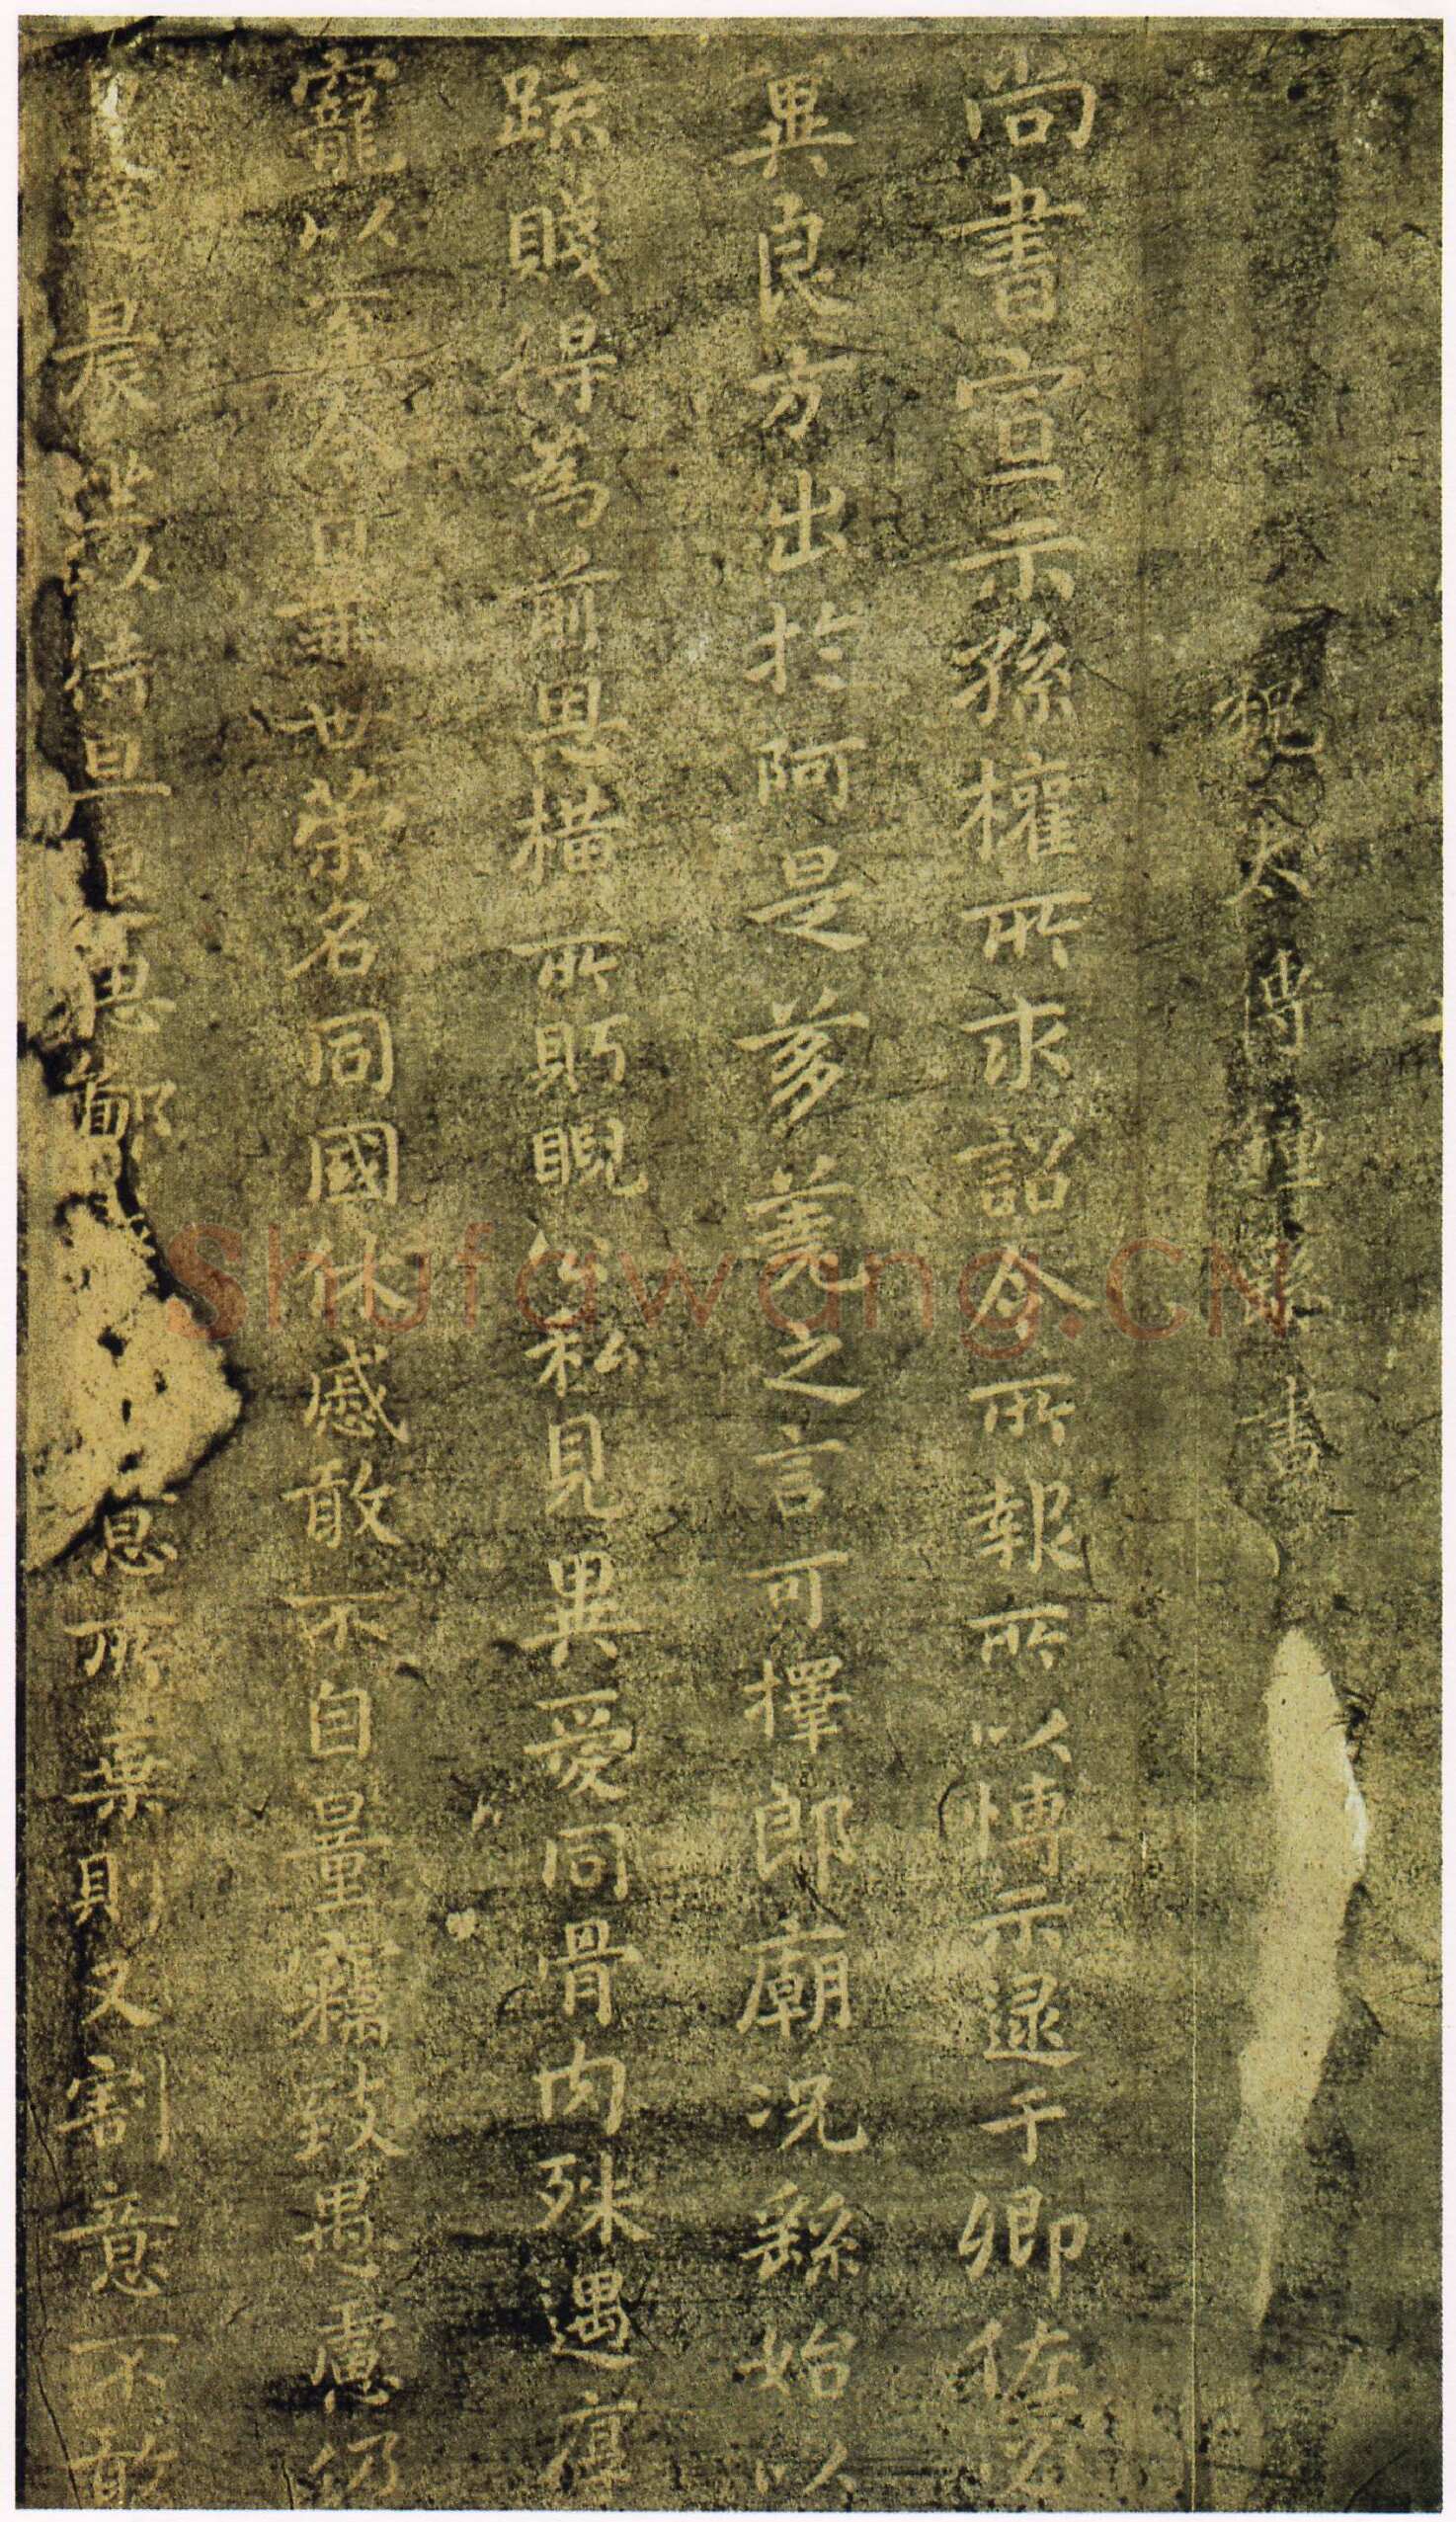 魏太傅鍾繇書
尚書宣示孫權所求詔令所報所以博示逮于卿佐必
異良方出於阿是芻蕘之言可擇郎廟況繇始以
疏賤得為前恩橫所眄睨公私見異愛同骨肉殊遇厚
寵以至今日再世榮名同國休慼敢不自量竊致愚慮仍
日達晨坐待旦退思鄙 息所棄則又割意不敢
Shufawang.CN